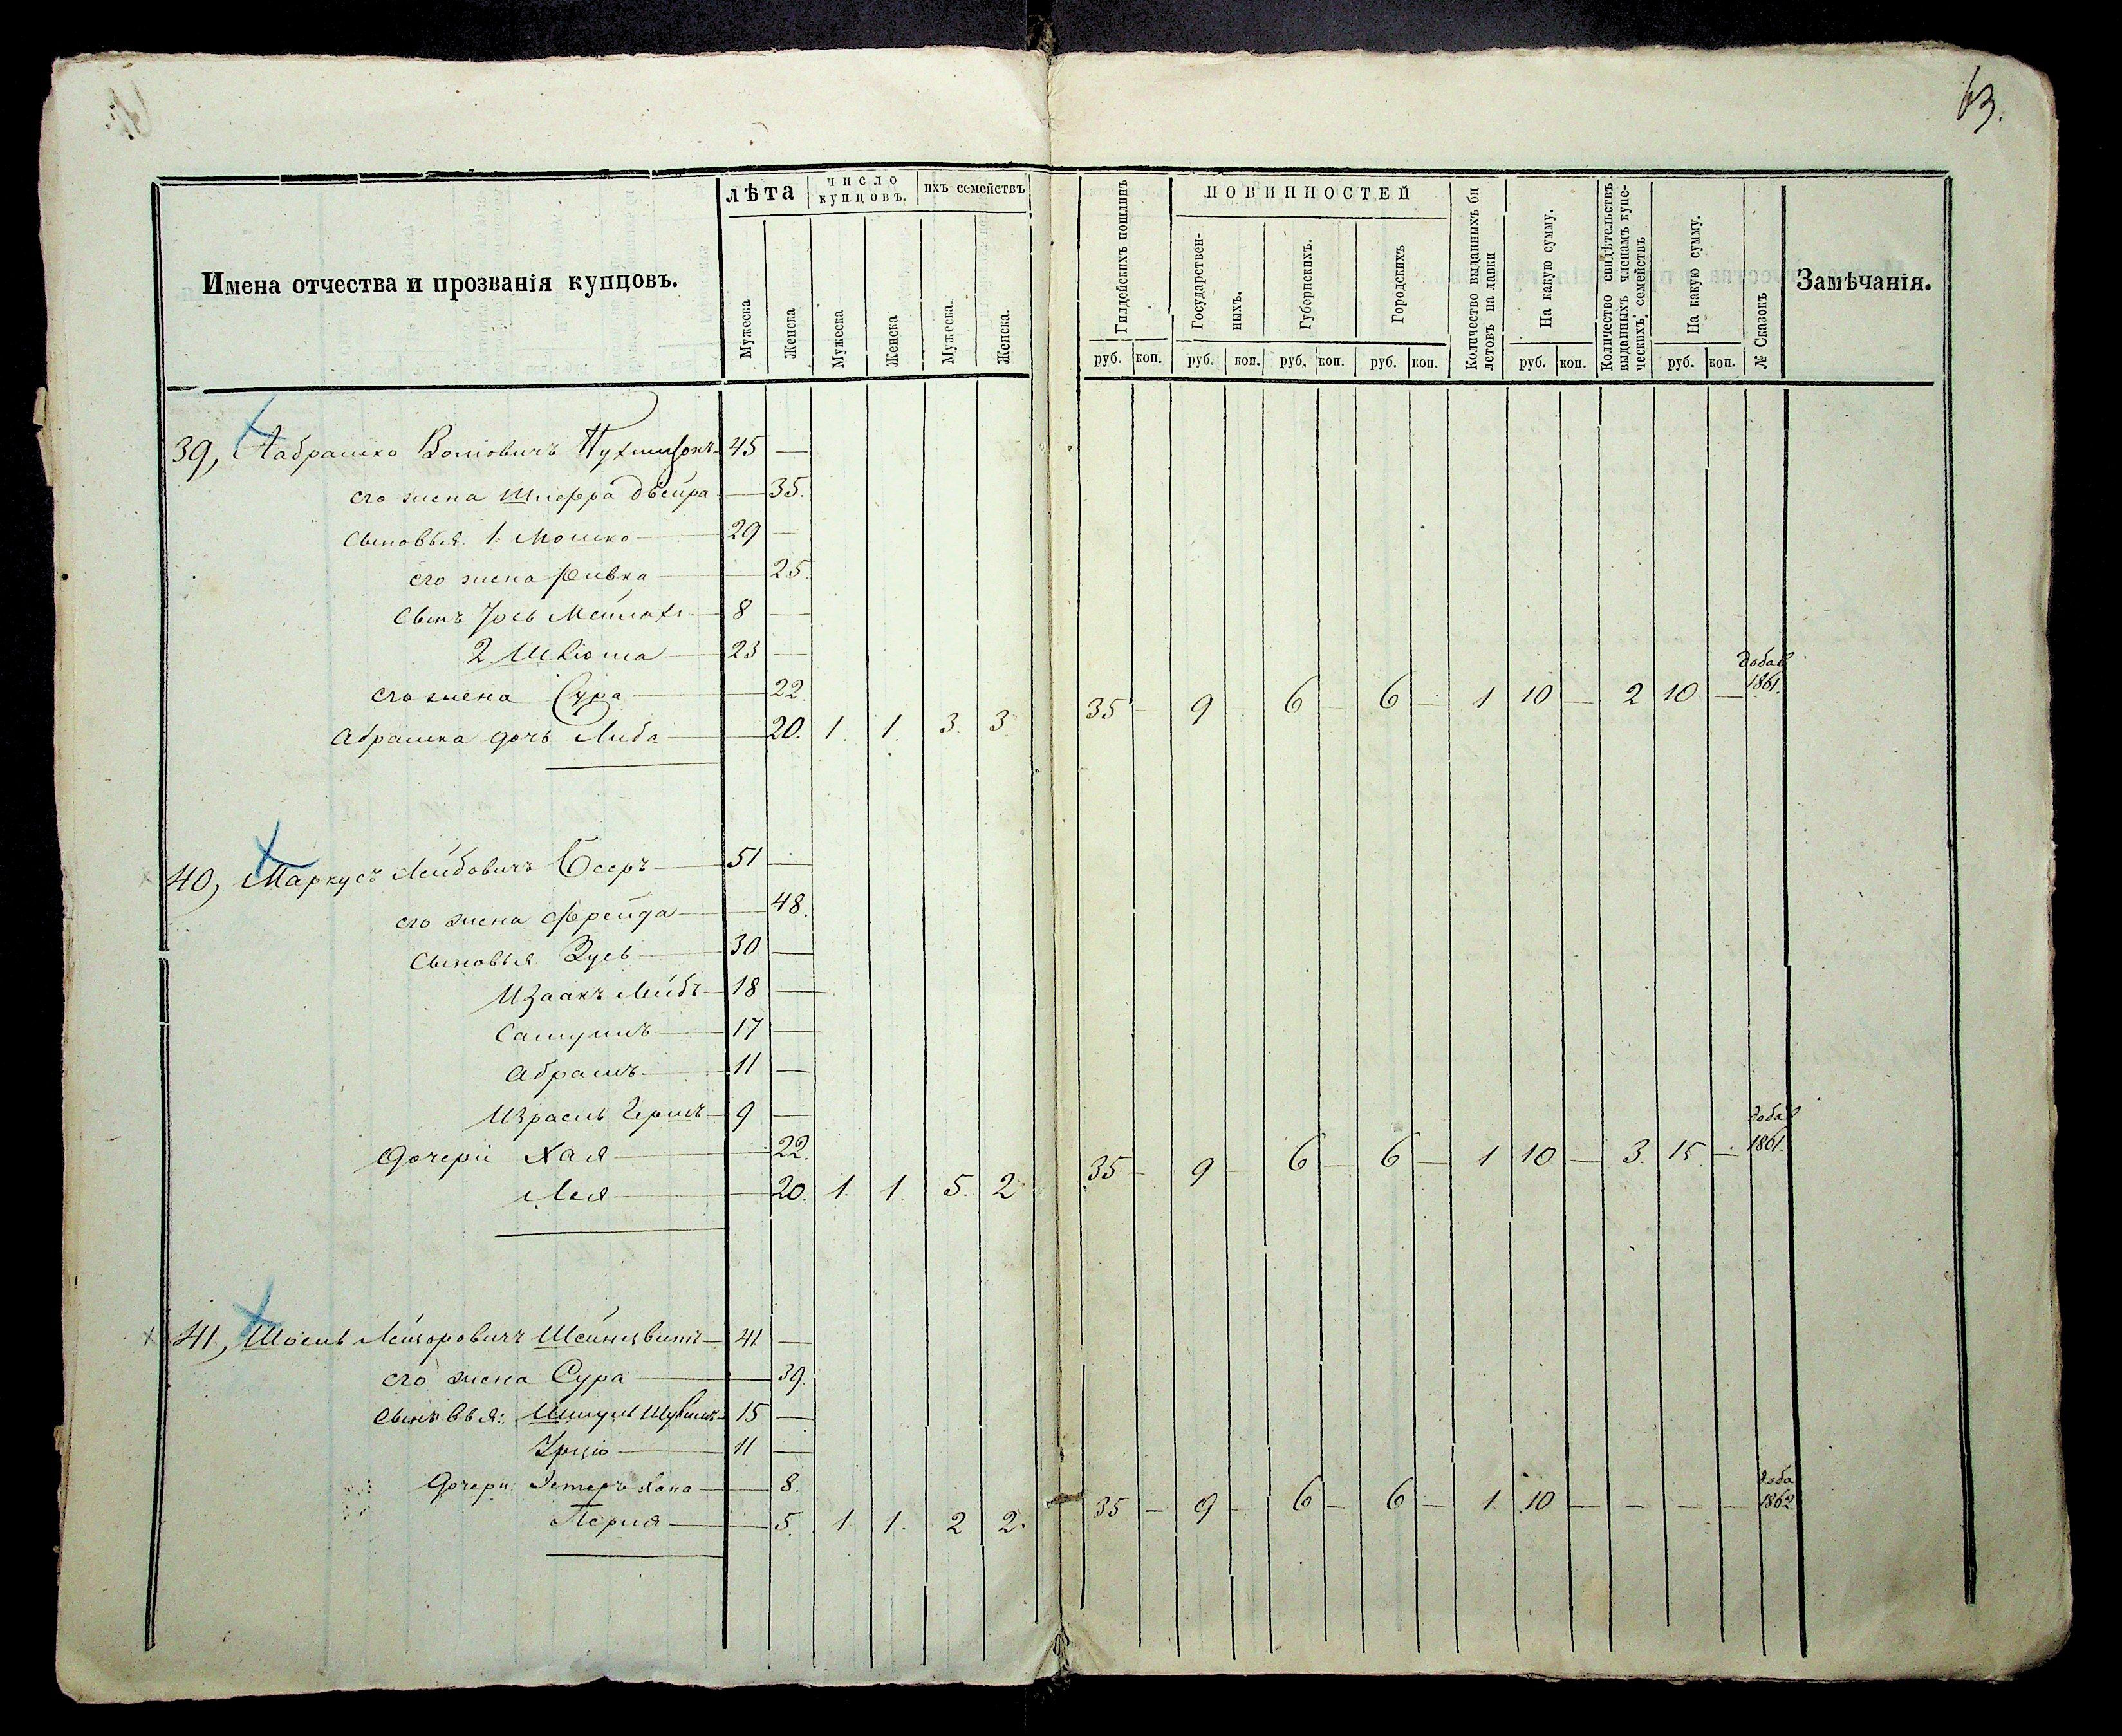 63.
Имена отчества и прозванія купцовъ.
лѣта
число купцовъ.
ихъ семействъ
Мужеска
Женска
Мужеска
Женска
Мужеска.
Женска.
Гильдейскихъ пошлинъ
ПОВИННОСТЕЙ
Государствен-
ныхъ.
Губернскихъ.
Городскихъ
Количество выданныхъ би
летовъ на лавки
На какую сумму.
Количество свидѣтельствъ
выданныхъ членамъ купе-
ческихъ семействъ
На какую сумму.
№ Сказокъ
Замѣчанія.
руб. коп. руб. коп. руб. коп. руб. коп. руб. коп. руб. коп.
39, 45 —
его жена Шифра Двейра — 35.
Сыновья 1. Мошко — 29 —
его жена Ривка — 25.
Сынъ 8 —
2. 23 —
его жена Сура — 22
Абрашка дочь Либа — 20. 1. 1. 3. 3 35 — 9 6 — 6 — 1 10 — 2 10 — добав 1861.
40, Маркусъ Лейбовичъ — 51 —
его жена Фрейда — 48.
Сыновья Зусь — 30 —
Изаакъ Лейбъ — 18 —
17 —
Абрамъ — 11 —
Израель Гершъ — 9 —
Дочери Хая — 22.
Лея — 20. 1. 1. 5. 2 35 — 9 — 6 — 6 — 1 10 — 3. 15 — добав 1861.
41, 41 —
его жена Сура — 39.
Сыновья: 15 —
11 —
Дочери Эстеръ Хана — 8.
5. 1. 1. 2 2. 35 — 9 — 6 — 6 — 1. 10 — — — — доба 1862